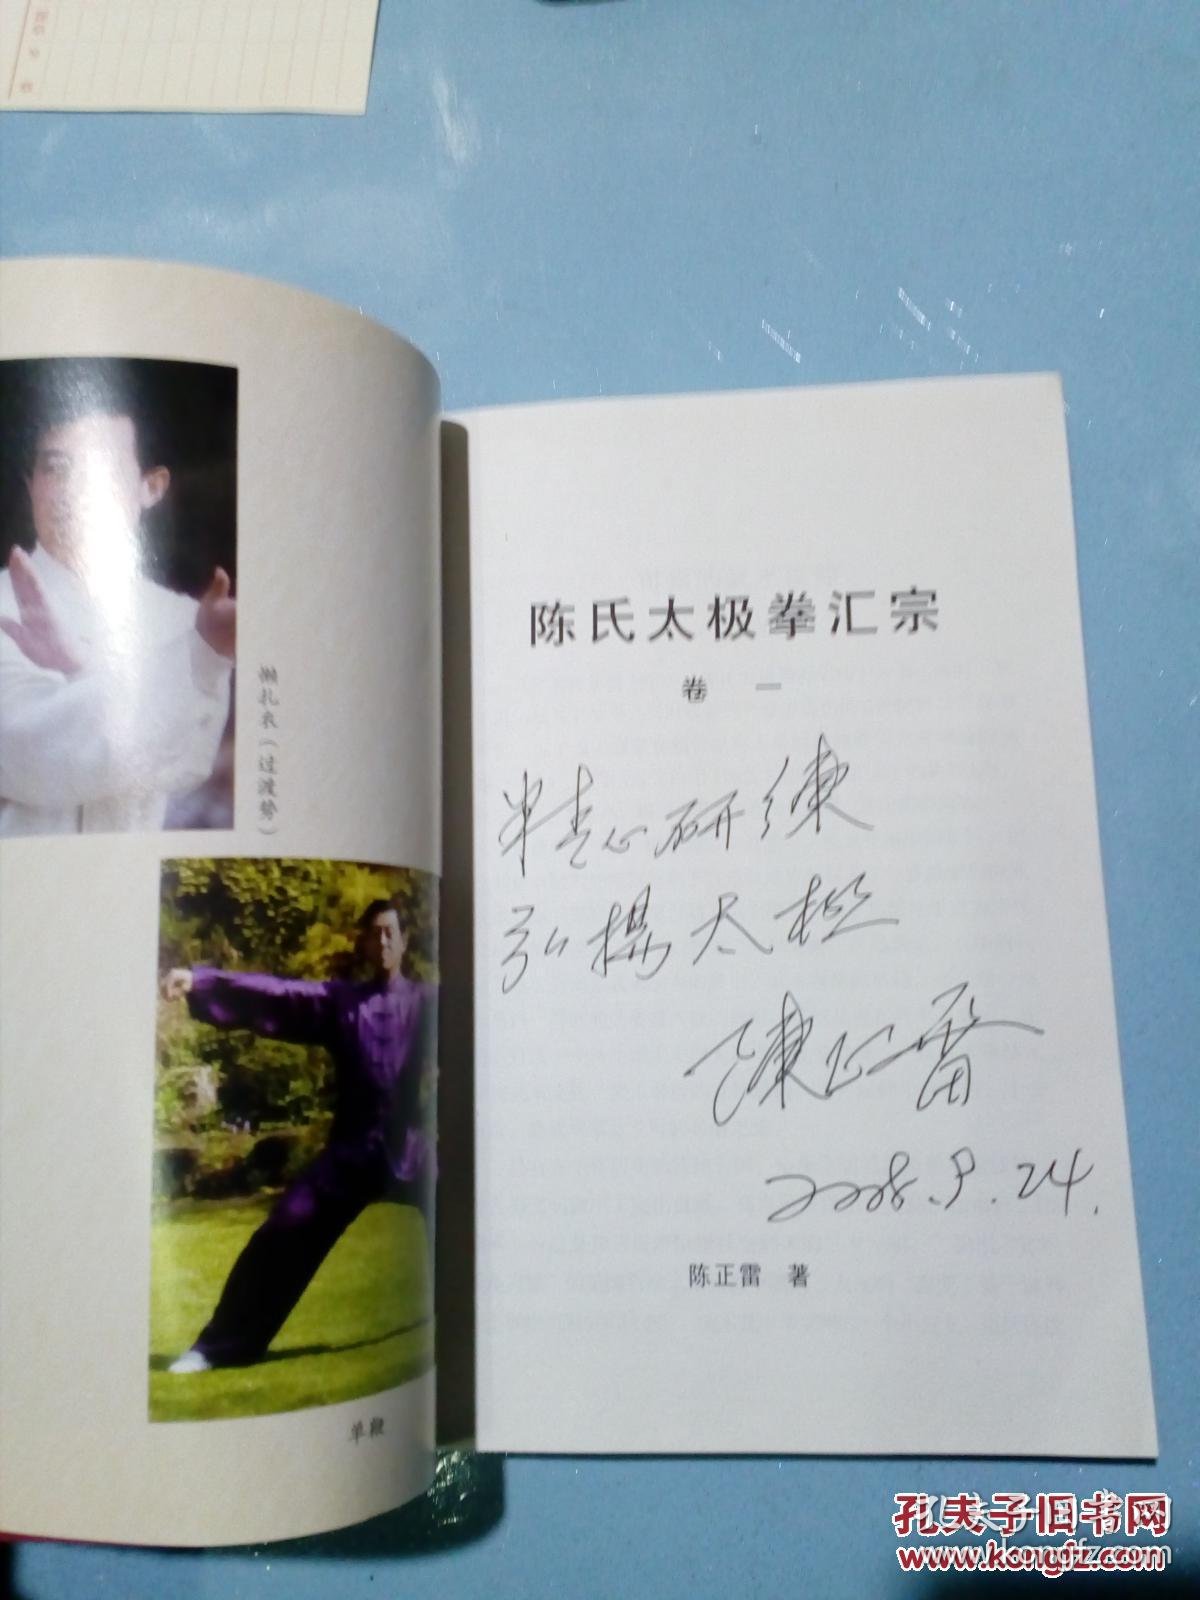 懒扎衣（过渡势）
单鞭
陈氏太极拳汇宗
卷一
精心研練
弘揚太極
陳正雷
2008.9.24.
陈正雷 著
孔夫子旧书网
www.kongfz.com